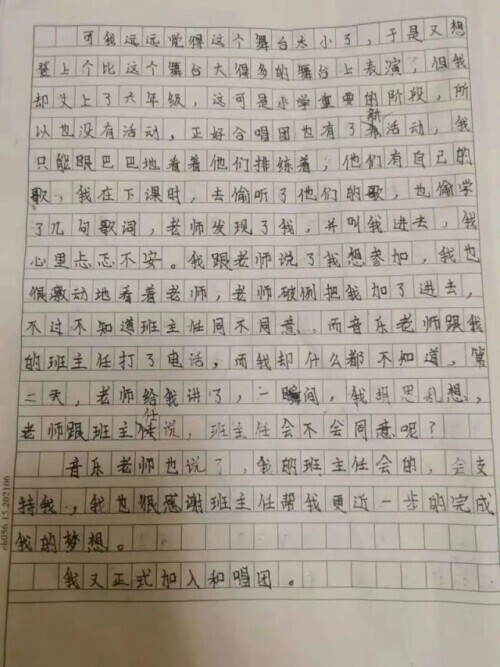 可我远远觉得这个舞台太小了，于是又想
登上个比这个舞台大得多的舞台上表演，但我
却又上了六年级，这可是小学重要的阶段，所
以也没有活动，正好合唱团也有了新活动，我
只能眼巴巴地看着他们排练着，他们有自己的
歌，我在下课时，去偷听了他们的歌，也偷学
了几句歌词，老师发现了我，并叫我进去，我
心里忐忑不安。我跟老师说了我想参加，我也
很激动地看着老师，老师破例把我加了进去，
不过不知道班主任同不同意，而音乐老师跟我
的班主任打了电话，而我却什么都不知道，第
二天，老师给我讲了，一瞬间，我胡思乱想，
老师跟班主任说，班主任会不会同意呢？
音乐老师也说了，我的班主任会的，会支
持我，我也很感谢班主任帮我更近一步的完成
我的梦想。
我又正式加入和唱团。
cb056.15.202106